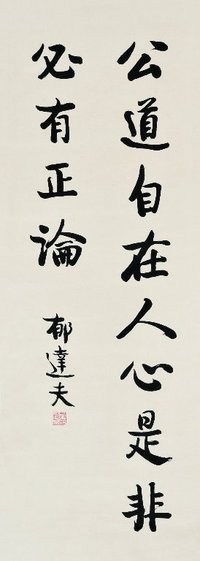 公道自在人心是非
必有正論
郁達夫